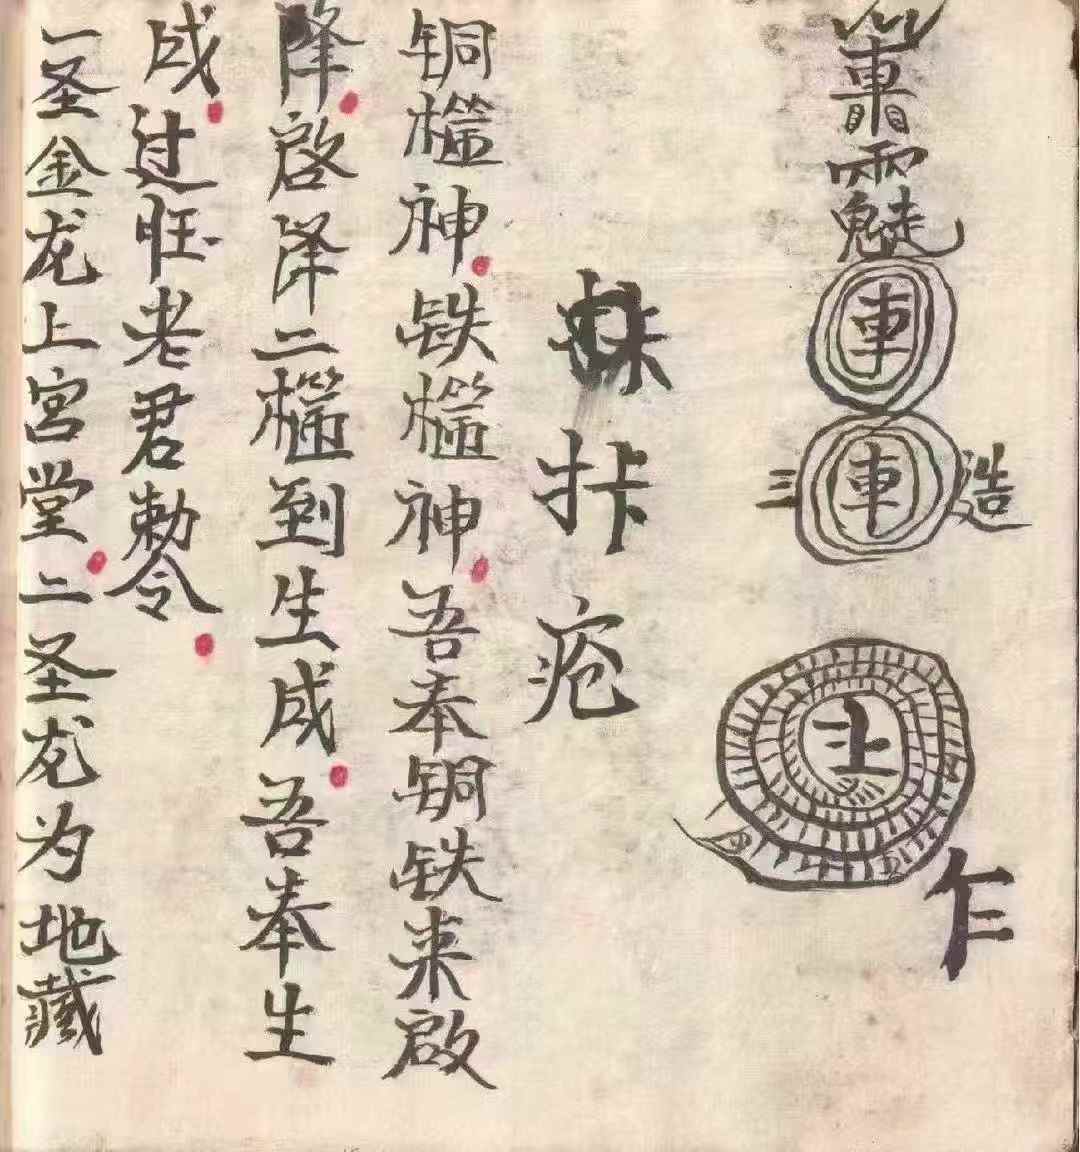 車
車
三 造
上
乍
挊 疮
铜槛神铁槛神吾奉铜铁来啟
降啓降二槛到生成吾奉生
成过旺老君勅令
一圣金龙上宮堂二圣龙为地藏